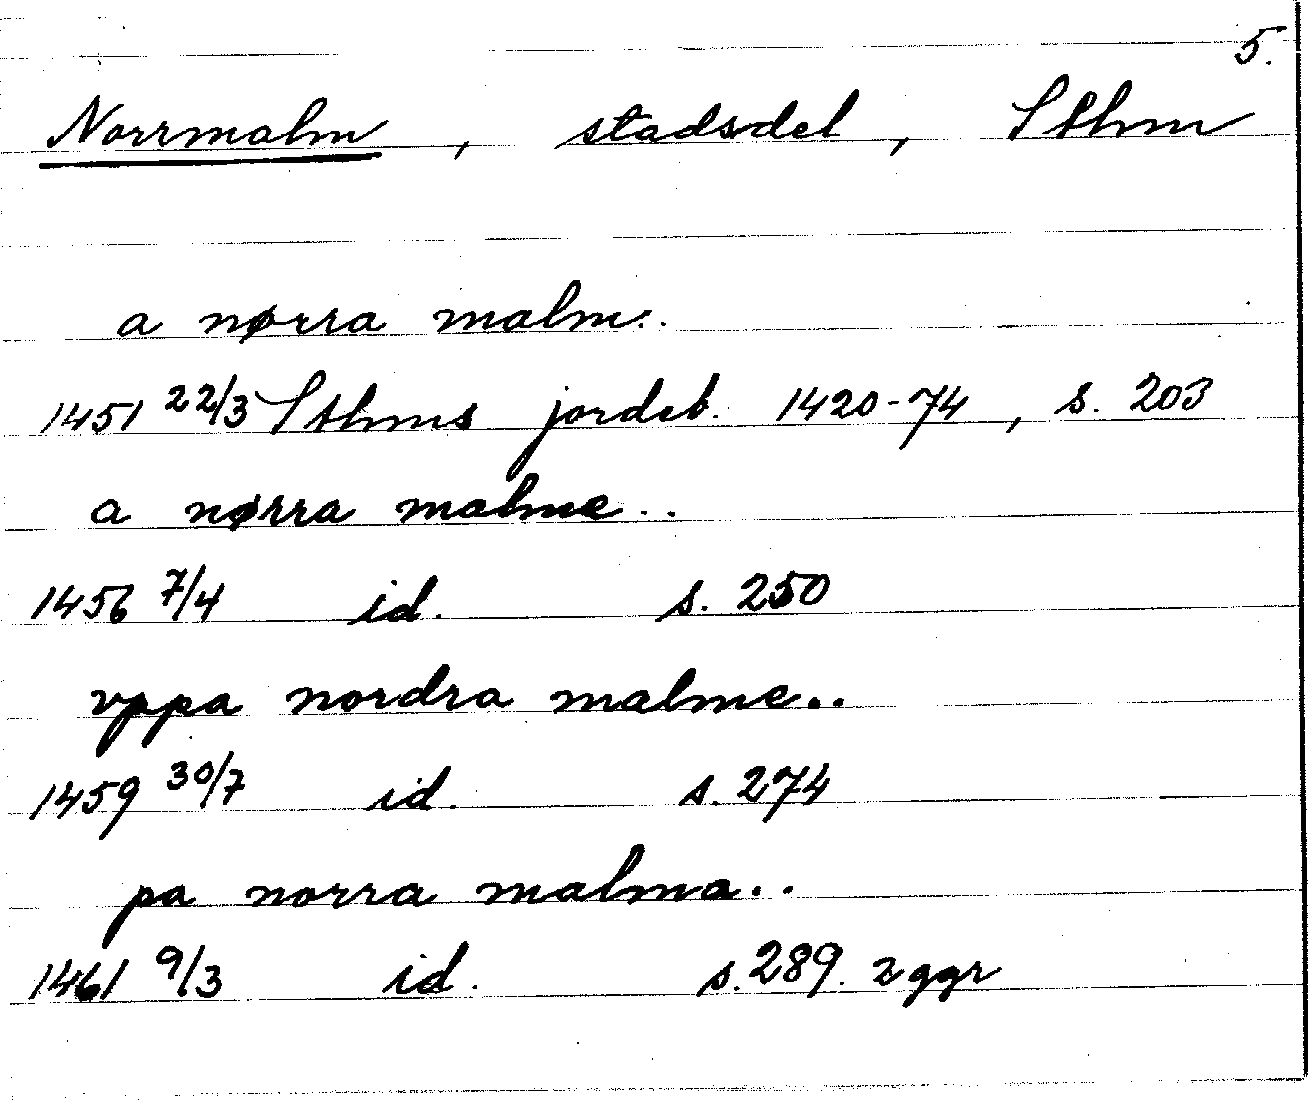 5.
Norrmalm, stadsdel, Sthm
a nørra malm..
1451 22/3 Sthms jordeb. 1420-74, s. 203
a nørra malme..
1456 7/4 id. s. 250
vppa nordra malme..
1459 30/7 id. s. 274
pa norra malma..
1461 9/3 id. s. 289. 2 ggr